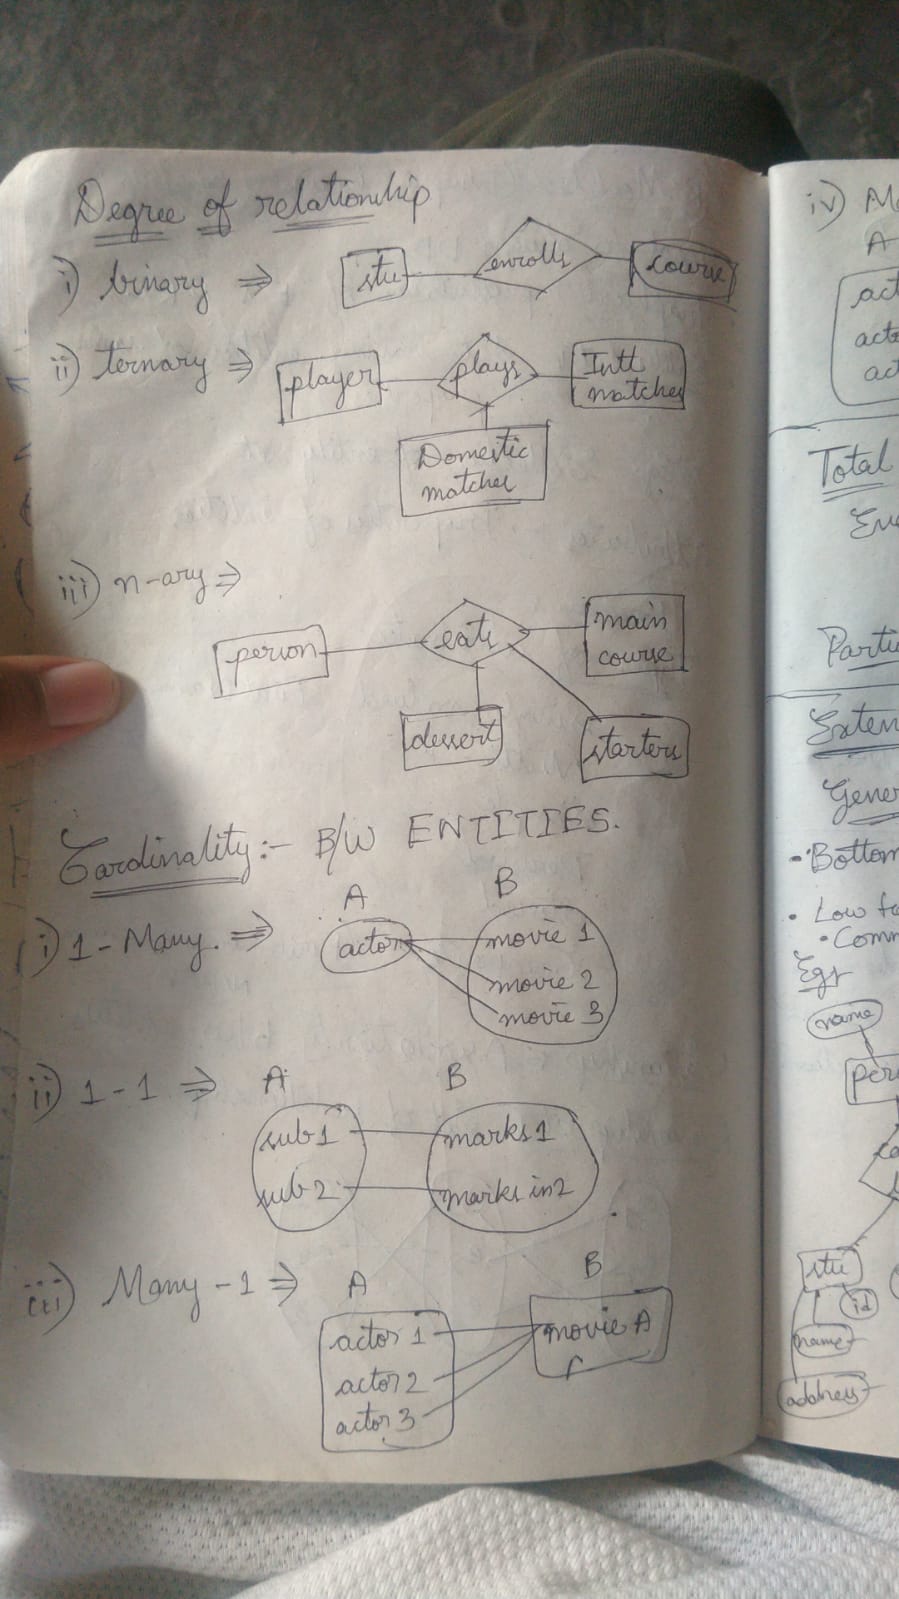 Degree of relationship
i) binary ⇒ stu enrolls course
ii) ternary ⇒ player plays Intl
matches
Domestic
matches
iii) n-ary ⇒
person eats main
course
dessert starters
Cardinality:- B/W ENTITIES.
A B
i) 1-Many. ⇒ actor movie 1
movie 2
movie 3
ii) 1-1 ⇒ A B
sub 1 marks 1
sub 2 marks in 2
iii) Many-1 ⇒ A B
actor 1 movie A
actor 2
actor 3
iv)
A
Total
Exten
Gener
• Bottom
• Low
• Comm
Egs
name
per
stu
id
name
address